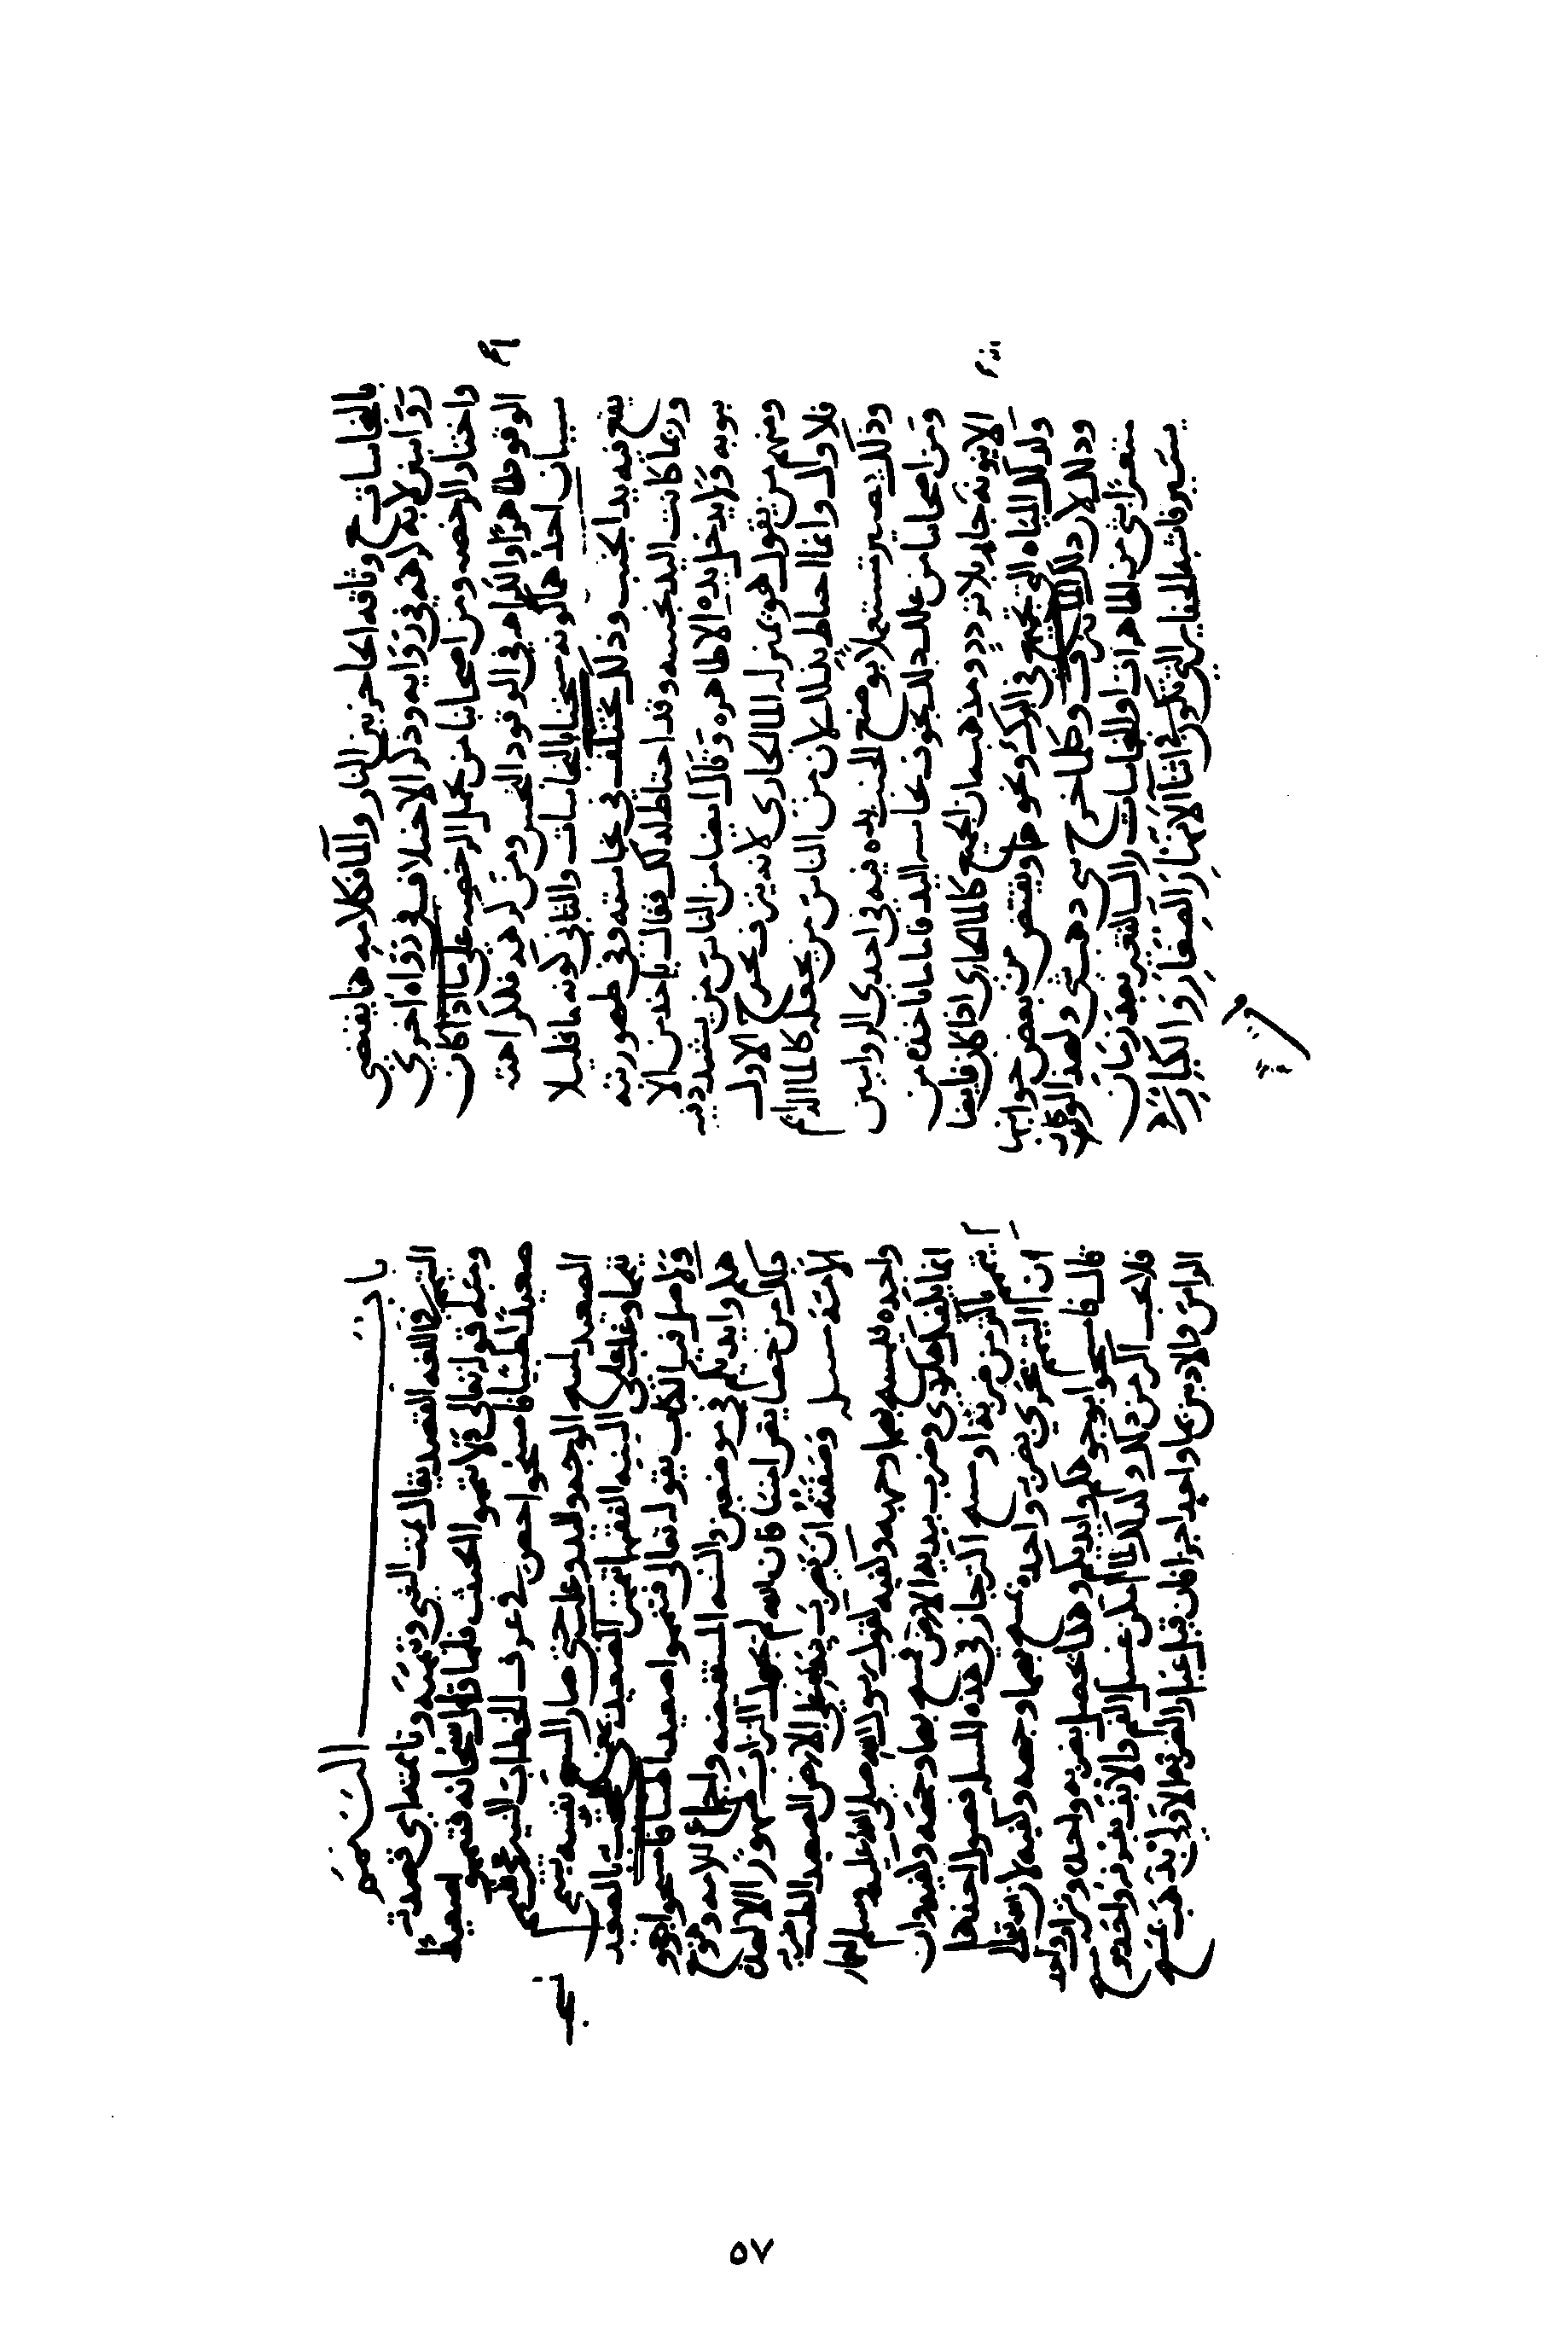 بالنجاسات وثاقه الحاجز بين النار والما فكلامه ها يقتضي
روايتين لانه كراهه في روايه وذكر الاختلاف في رواه اخري
واختار الرخصه ومن اصحابنا من يحمل الرخصه على ما اذا كان
الوقود طاهرا والكراهه في الوقود النجس ومن كرهه فلكراهته
سببان احدهما كونه سخنا بالنجاسات والثاني كونه ما قليلا
يقع فيه يد الجنب وذلك مختلف في نجاسته وفي طهوريته
وربما كانت اليد نجسه وقد احتاط لذلك فقال ياخذ من الا
نبوبه ولا يدخل يده الا طاهره وقال ايضا من الناس من يشدد فيه
ومنهم من يقول هو بمنزله الما الجاري لانه ينزف يخرج الاول
فلاول وانما احتاط بذلك لان من الناس من يجعله كالما الدايم
وذلك يصير مستعملا بوضع الجنب يده فيه في احدى الروايتين
ومن اصحابنا من علل ذلك بخوف نجاسه اليد فاما ما ياخذه من
الانبوبه جاره بلا تردد ومذهبه ان الجميع كالما الجاري اذا كان فايضا
وكذلك المياه التي تجتمع في البرك ونحوها ويفتض من بعض جوانبها
وذلك لان ذلك الما ينزف وكلما خرج شي ذهب شي ولهذا لو كان
متغيرا بشي من الطاهرات او النجاسات زال التغير بعد زمان
يسير فاشبه الحفاير التي تكون في اثنا الانهار الصغار والكبار
باب التيمم
التيمم في اللغه القصد يقال يممت الشي وتيممته وتاممته اي قصدته
ومثله قوله تعالى ولا تيمموا الخبيث فلما قال سبحانه فتيمموا صعيدا
صعيدا طيبا فامسحوا اختص في عرف الخطاب الشرعي
الصعيد لمسح الوجه واليدين حتى صار المسح نفسه تيمما
تيمما وغلب على السنه الفقها تيمن الصعيد بالصعيد
والاصل فيه الكتاب بقوله تعالى فتيمموا صعيدا طيبا فامسحوا بوجو
هكم وايديكم في موضعين والسنه المستفيضه واجماع الامه وهو
مما من خصايص امتنا فان الله لم يجعل التراب طهورا الا لهذه
الامه مسله وصفته ان يضرب بيديه على الارض الصعيد الطيب ضربه
واحده فيمسح بهما وجهه وكفيه لقول رسول الله صلى الله عليه وسلم لعمار
انما يكفيك هكذا وضرب بيديه الارض فمسح بهما وجهه وكفيه وان
تيمم باكثر من ضربه او مسح اكثر جاز في هذه المسله فصول احدها
ان التيمم يجزي بضربه واحده يمسح بهما وجهه وكفيه لان الله تعالى
قال فامسحوا بوجوهكم وايديكم وهذا يحصل بضربه واحده وتراب واحد
فلا يجب اكثر من ذلك ولذلك لما امكن غسل الفم والانف بغرفه واحده ومسح
الراس والاذنين بما واحد اجزا فان قيل غبار الضربه الاولى يذهب بمسح
٥٧